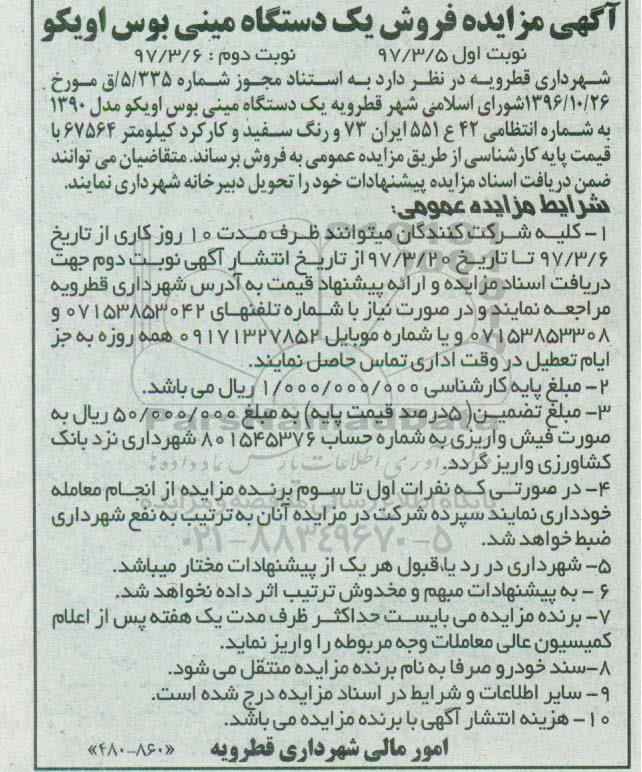 آگهی مزایده فروش یک دستگاه مینی بوس اویکو
نوبت اول ۹۷/۳/۵ نوبت دوم : ۹۷/۳/۶
شهرداری قطرویه در نظر دارد به استناد مجوز شماره ۵/۳۳۵/ق مورخ
۱۳۹۶/۱۰/۲۶شورای اسلامی شهر قطرویه یک دستگاه مینی بوس اویکو مدل ۱۳۹۰
به شماره انتظامی ۴۲ ع ۵۵۱ ایران ۷۳ و رنگ سفید و کارکرد کیلومتر ۶۷۵۶۴ با
قیمت پایه کارشناسی از طریق مزایده عمومی به فروش برساند. متقاضیان می توانند
ضمن دریافت اسناد مزایده پیشنهادات خود را تحویل دبیرخانه شهرداری نمایند.
شرایط مزایده عمومی:
۱- کلیه شرکت کنندگان میتوانند ظرف مدت ۱۰ روز کاری از تاریخ
۹۷/۳/۶ تا تاریخ ۹۷/۳/۲۰ از تاریخ انتشار آگهی نوبت دوم جهت
دریافت اسناد مزایده و ارائه پیشنهاد قیمت به آدرس شهرداری قطرویه
مراجعه نمایند و در صورت نیاز با شماره تلفنهای ۰۷۱۵۳۸۵۳۰۴۲ و
۰۷۱۵۳۸۵۳۳۰۸ و یا شماره موبایل ۰۹۱۷۱۳۲۷۸۵۲ همه روزه به جز
ایام تعطیل در وقت اداری تماس حاصل نمایند.
۲- مبلغ پایه کارشناسی ۱/۰۰۰/۰۰۰/۰۰۰ ریال می باشد.
۳- مبلغ تضمین( ۵درصد قیمت پایه) به مبلغ ۵۰/۰۰۰/۰۰۰ ریال به
صورت فیش واریزی به شماره حساب ۸۰۱۵۴۵۳۷۶ شهرداری نزد بانک
کشاورزی واریز گردد.
۴- در صورتی که نفرات اول تا سوم برنده مزایده از انجام معامله
خودداری نمایند سپرده شرکت در مزایده آنان به ترتیب به نفع شهرداری
ضبط خواهد شد.
۵- شهرداری در رد یا قبول هر یک از پیشنهادات مختار میباشد.
۶ - به پیشنهادات مبهم و مخدوش ترتیب اثر داده نخواهد شد.
۷- برنده مزایده می بایست حداکثر ظرف مدت یک هفته پس از اعلام
کمیسیون عالی معاملات وجه مربوطه را واریز نماید.
۸-سند خودرو صرفا به نام برنده مزایده منتقل می شود.
۹- سایر اطلاعات و شرایط در اسناد مزایده درج شده است.
۱۰- هزینه انتشار آگهی با برنده مزایده می باشد.
امور مالی شهرداری قطرویه «۴۸۰-۸۶۰»
ParsNamadData
۰۲۱-۸۸۳۴۹۶۷۰-۵